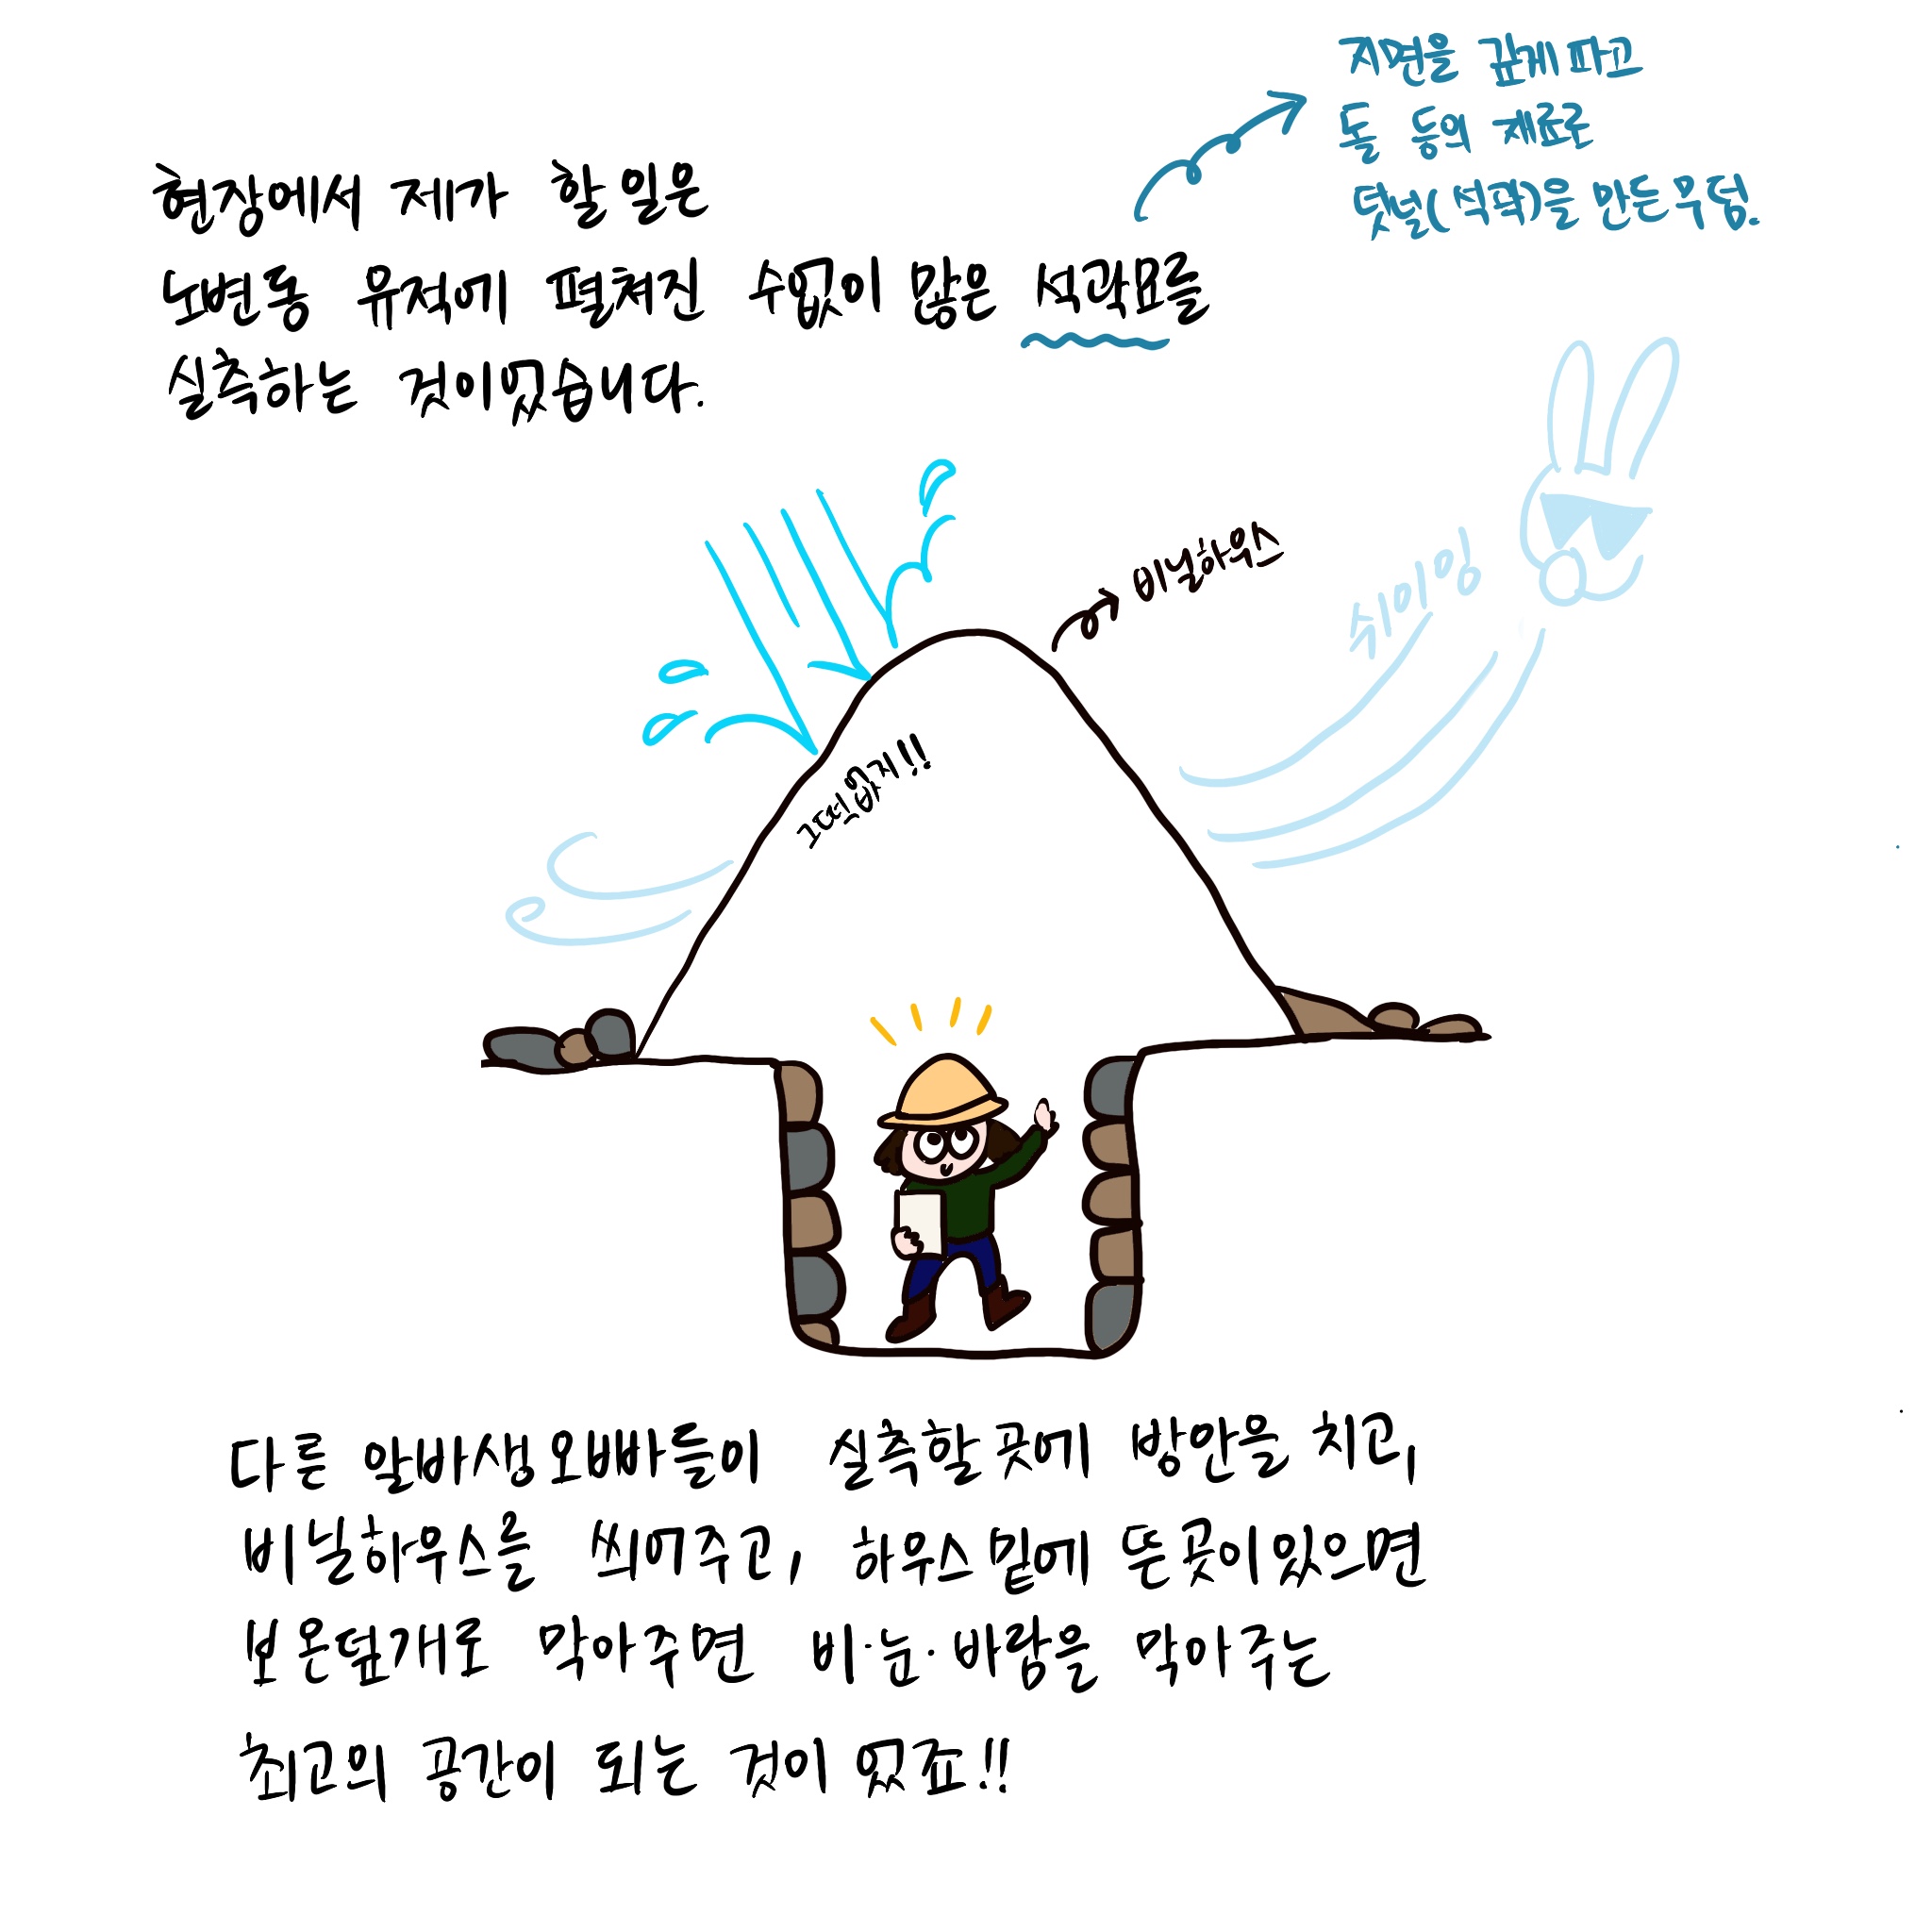 지면을 깊게 파고
돌 등의 재료로
덧널(석곽)을 만든 무덤.
현장에서 제가 할 일은
노변동 유적에 펼쳐진 수없이 많은 석곽묘를
실측하는 것이었습니다.
비닐하우스
슈이잉
끄떡없지!!
다른 알바생오빠들이 실측할 곳에 방안을 치고,
비닐하우스를 씌여주고, 하우스 밑에 뜬 곳이 있으면
보온덮개로 막아주면 비·눈·바람을 막아주는
최고의 공간이 되는 것이었죠!!